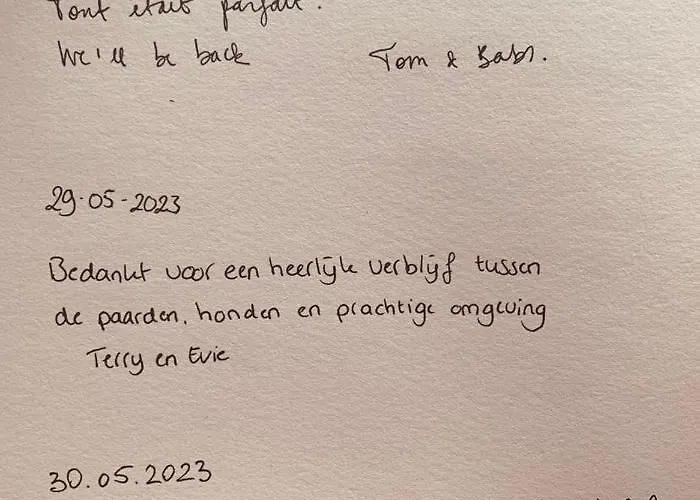 Tout était parfait.
We'll be back Tom & Babs.
29-05-2023
Bedankt voor een heerlijk verblijf tussen
de paarden, honden en prachtige omgeving
Terry en Evie
30.05.2023